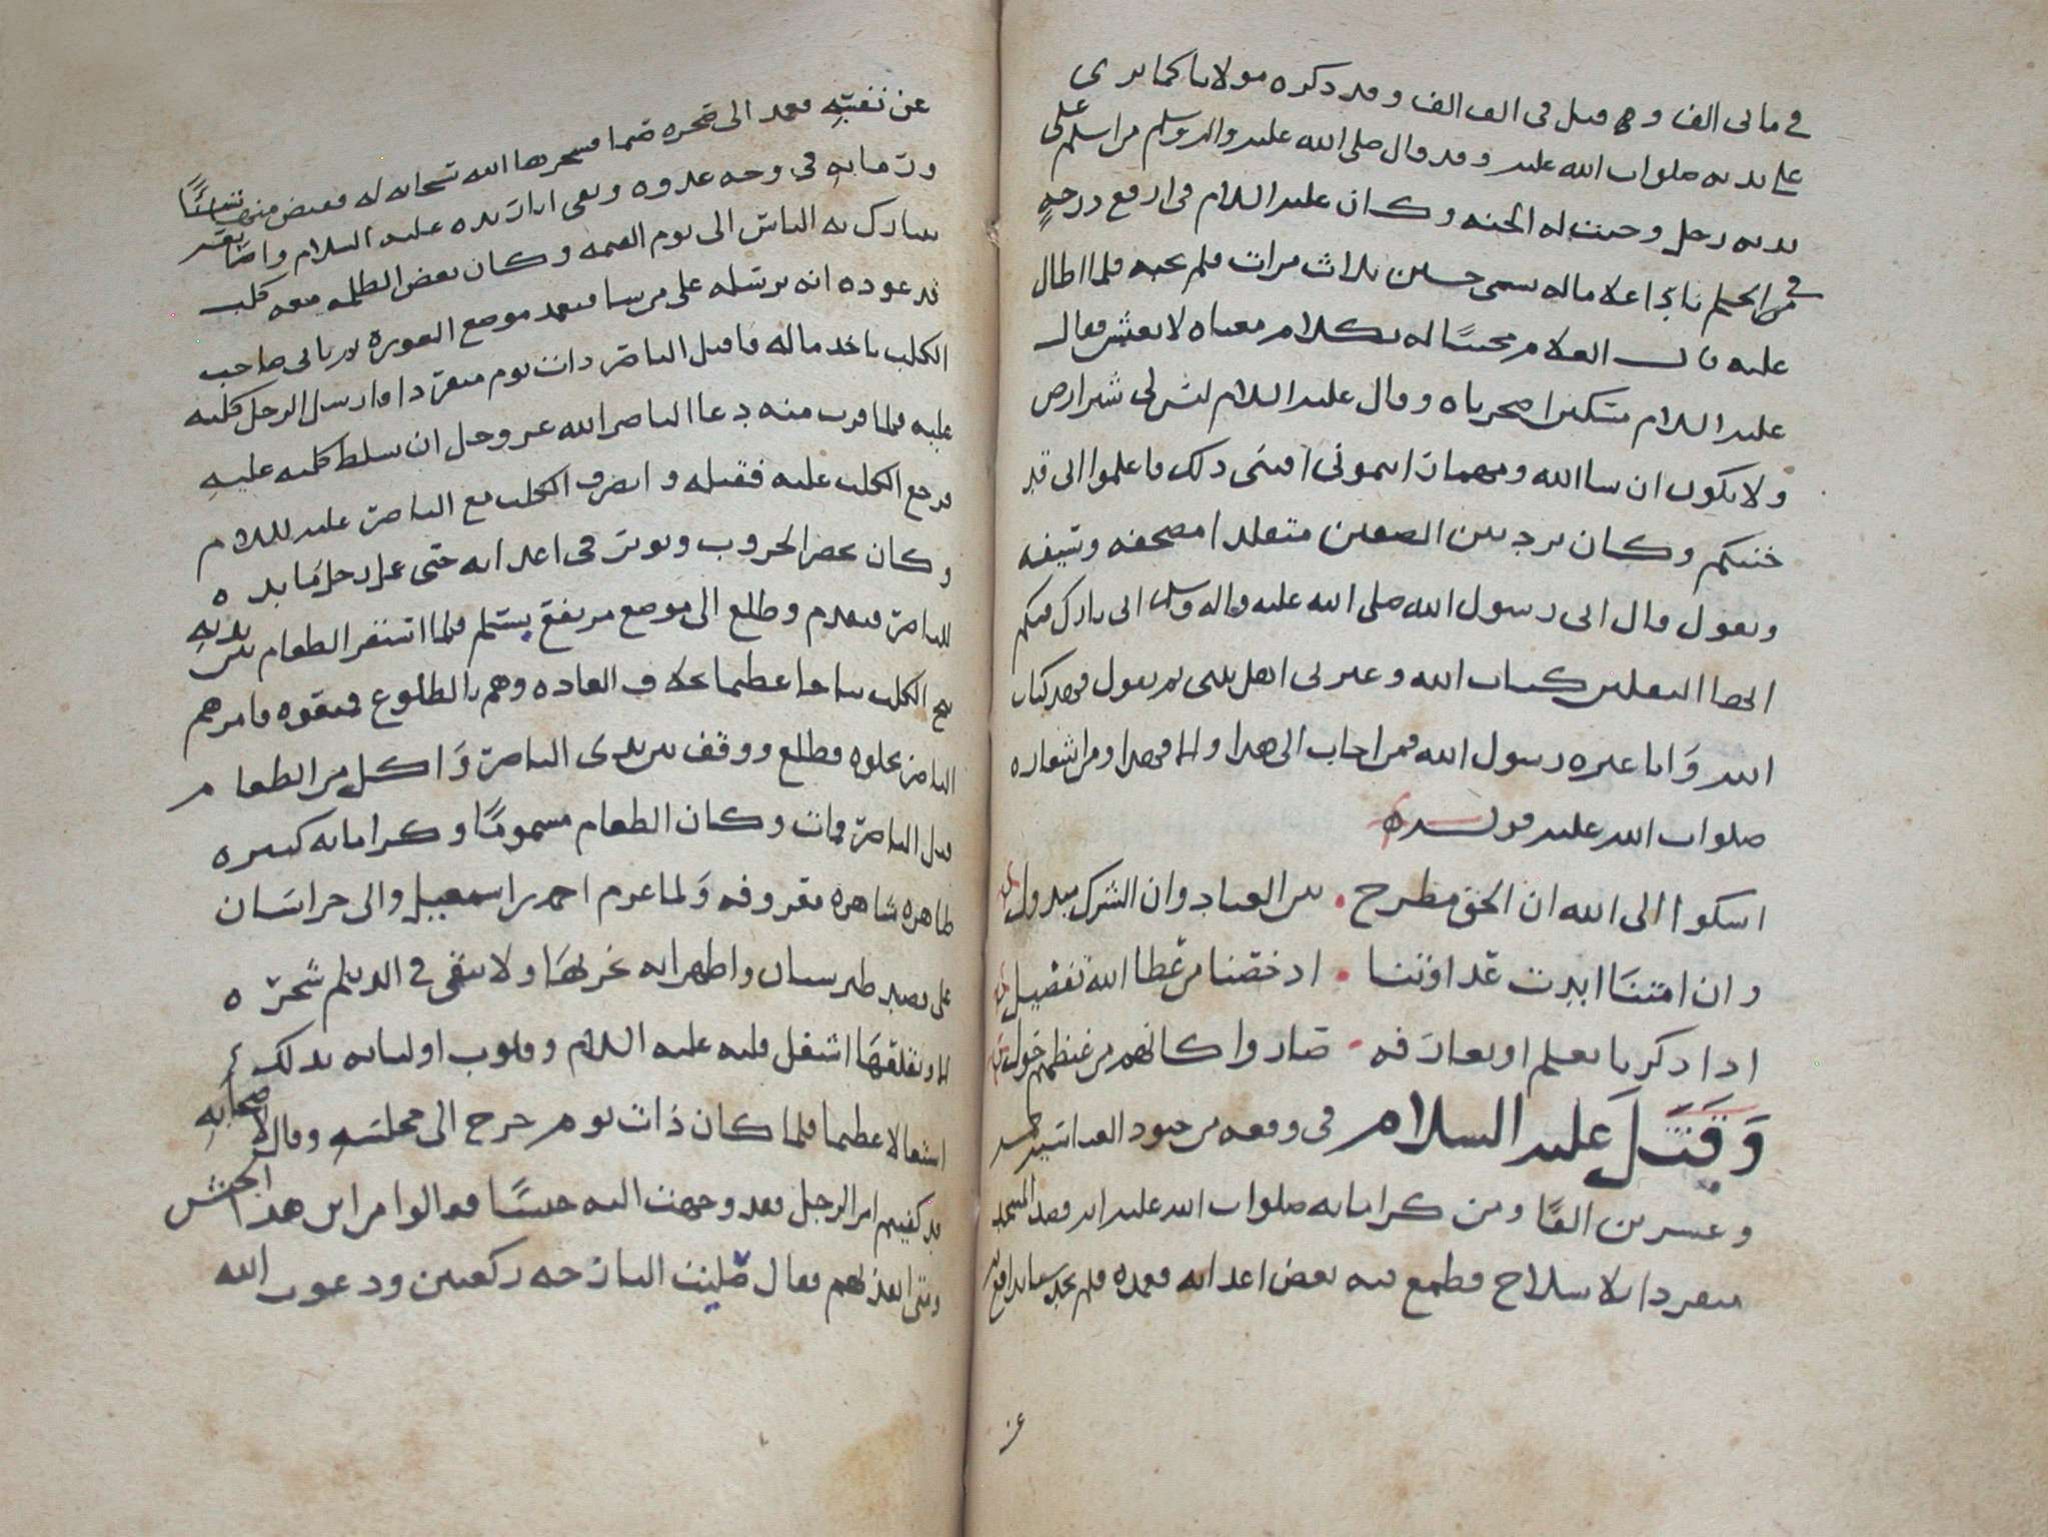 في مائى الف وهو قيل فى الف الف وقد ذكره مولانا كما ترى
على يديه صلوات الله عليه وقد قال صلى الله عليه واله وسلم من اسلم على
يديه رجل وجبت له الجنه وكان عليه السلام فى ارفع درجه
من الحلم نادا غلاما له يسمى حسين ثلاث مرات فلم يجبه فلما اطال
عليه قال الغلام مجيبًا له بكلام معناه لا تعش فقال
عليه السلام مسكين اضجرناه وقال عليه السلام ليس لى شبر ارض
ولا يكون ان شا الله ومهما رايتمونى اقتنى ذلك فاعلموا انى قد
خنتكم وكان يرد بين الصفين متقلدا مصحفه وسيفه
ويقول قال ابى رسول الله صلى الله عليه واله وسلم انى تارك فيكم
الثقلين كتاب الله وعترتى اهل بيتى ثم يقول فهذا كتاب
الله وَانا عتره رسول الله فمن اجاب الى هذا والا فهذا ومن اشعاره
صلوات الله عليه قوله
اشكوا الى الله ان الحق مطرح • بين العباد وان الشرك مبذول
وان امتنَا ابدت عداوتنا • اذ خصنا من عطا الله تفضيل
اذا ذكرنا بعلم او بعارفه • صاروا كانهم من غيظهم حول
وَقَتَلَ عليه السلام فى وقعه من جنود العباسيه
وعشرين الفًا ومن كراماته صلوات الله عليه انه قصد المسجد
منفردا بلا سلاح فطمع فيه بعض اعدائه فقصده فلم يجد شيا يدافع به
عن
عن نفسِهِ فعمد الى صخره صما فسخرها الله سبحانه له فقبض منها شَيئًا
ورمَا به فى وجه عدوه وبقى اثار يده عليه السلام واضحَا
يتبارك به الناس الى يوم القيمه وكان بعض الظلمه معه كلب
قد عوده انه يرسله على من شا فيعمد موضع العوره ثم ياتى صاحب
الكلب ياخذ ماله فاقبل الناصر ذات يوم منفردا فارسل الرجل كلبه
عليه فلما قرب منه دعا الناصر الله عز وجل ان يسلط كلبه عليهِ
فرجع الكلب عليه فقتله وانصرف الكلب مع الناصر عليه السلام
وكان يحضر الحروب ويوثر فى اعدائه حتى عمل رجل مَائده
للناصر فتقدم وطلع الى موضع مرتفع بسلم فلما استقر الطعام بين يديهِ
نبح الكلب نباحا عظيما بخلاف العاده وهم بالطلوع فمنعوه فامرهم
الناصر يخلوه فطلع ووقف بين يدى الناصر وَاكل من الطعام
قبل الناصر فمات وكان الطعام مسمومًا وكراماته كثيره
ظاهره شاهره معروفه وَلما عزم احمد بن اسمعيل والى خراسَان
على قصد طبرستان واظهر انه يخربهَا ولا يبقى فى الديلم شجره
الا ويقلعهَا اشتغل قلبه عليه السلام وقلوب اوليائه بذلك
اشتغالا عظيما فلما كان ذات يوم خرج الى مجلسَهِ وقال لاصحَابهِ
قد كفيتم امر الرجل فقد وجهت اليه جيشًا فقالوا من اين هذا الجيش
ومتى انفذتهم فقال صليت البارحه ركعتين ودعوت الله